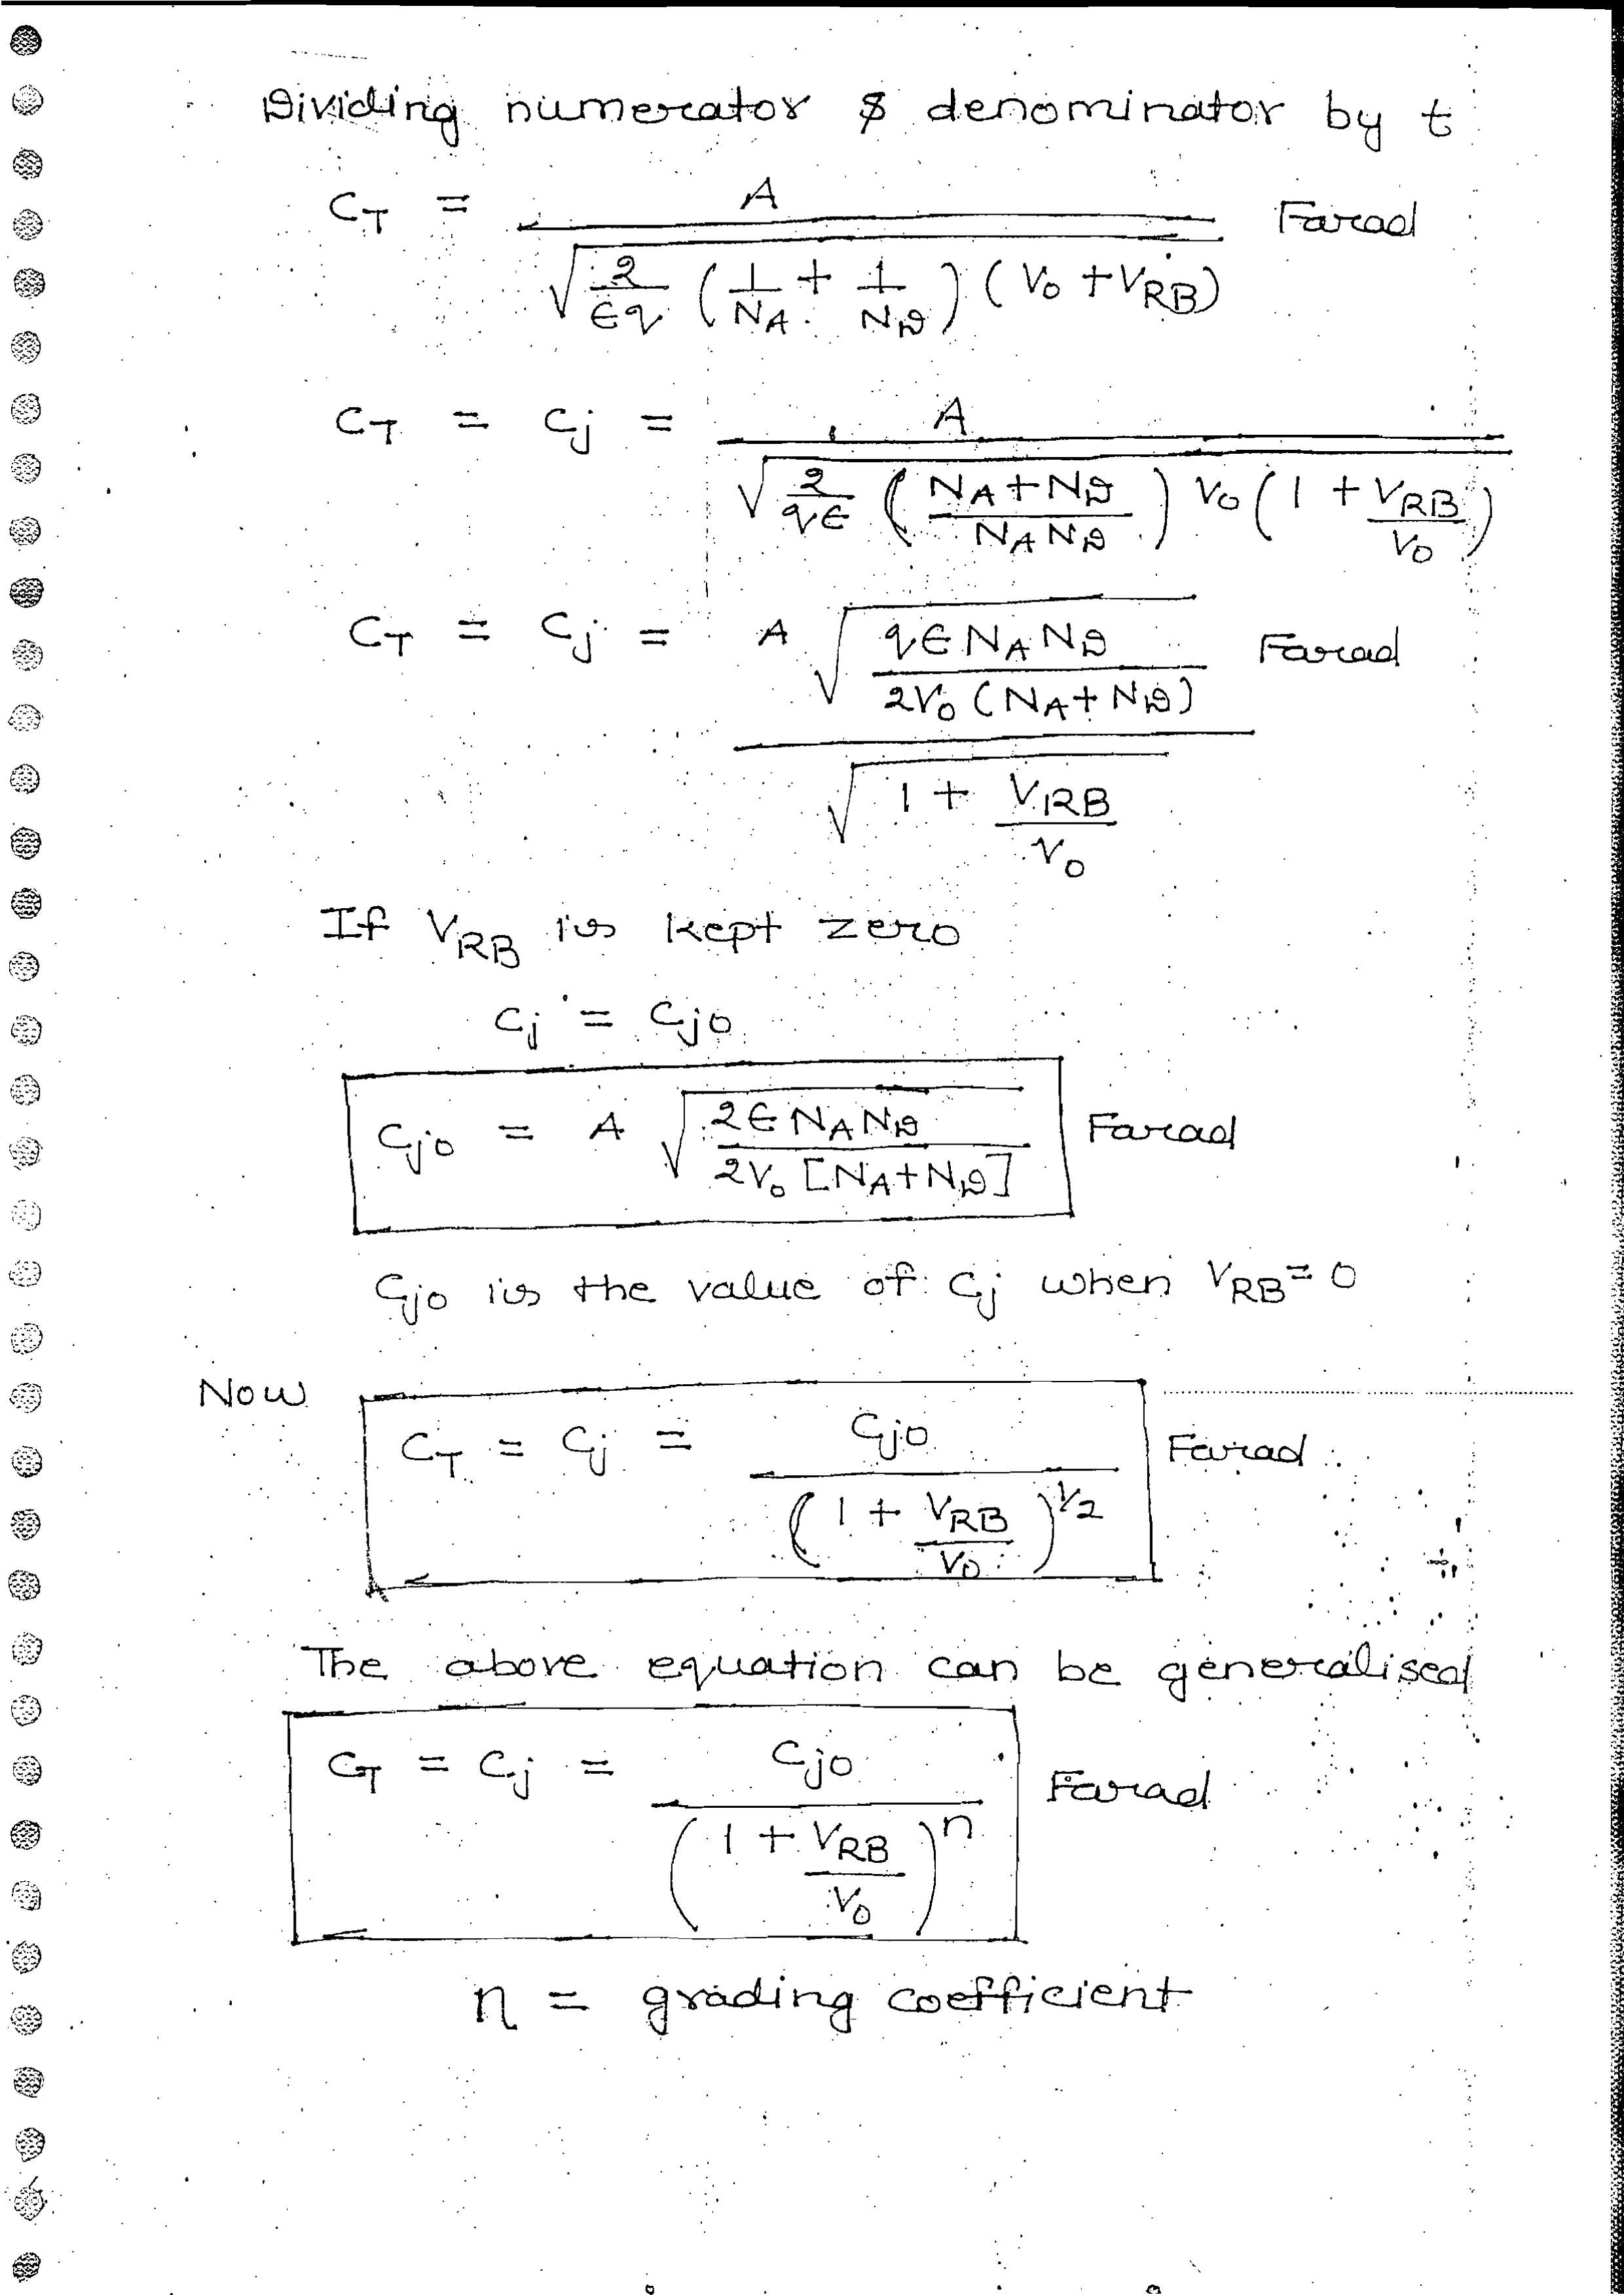 Dividing numerator & denominator by t
C_T = A / √( 2/(εq) (1/N_A + 1/N_D) (V_0 + V_RB) ) Farad
C_T = C_j = A / √( 2/(qε) ((N_A + N_D)/(N_A N_D)) V_0 (1 + V_RB/V_0) )
C_T = C_j = A √( qε N_A N_D / (2V_0 (N_A + N_D)) ) / √( 1 + V_RB/V_0 ) Farad
If V_RB is kept zero
C_j = C_j0
C_j0 = A √( 2ε N_A N_D / (2V_0 [N_A + N_D]) ) Farad
C_j0 is the value of C_j when V_RB = 0
Now C_T = C_j = C_j0 / (1 + V_RB/V_0)^1/2 Farad
The above equation can be generalised
C_T = C_j = C_j0 / (1 + V_RB/V_0)^n Farad
n = grading coefficient